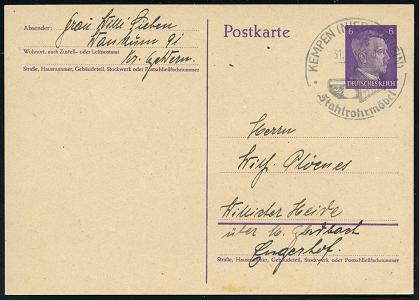 Absender: Frau Willi Gieben
Wankum 9i
Wohnort, auch Zustell- oder Leitpostamt
Kr. Geldern.
Straße, Hausnummer, Gebäudeteil, Stockwerk oder Postschließfachnummer
Postkarte
6 6
DEUTSCHES REICH
KEMPEN (NIEDERRHEIN)
Stahlrohrmöbel
Herrn
Wilh. Ploenes
Willicher Heide
über M. Gladbach
Engerhof.
Straße, Hausnummer, Gebäudeteil, Stockwerk oder Postschließfachnummer